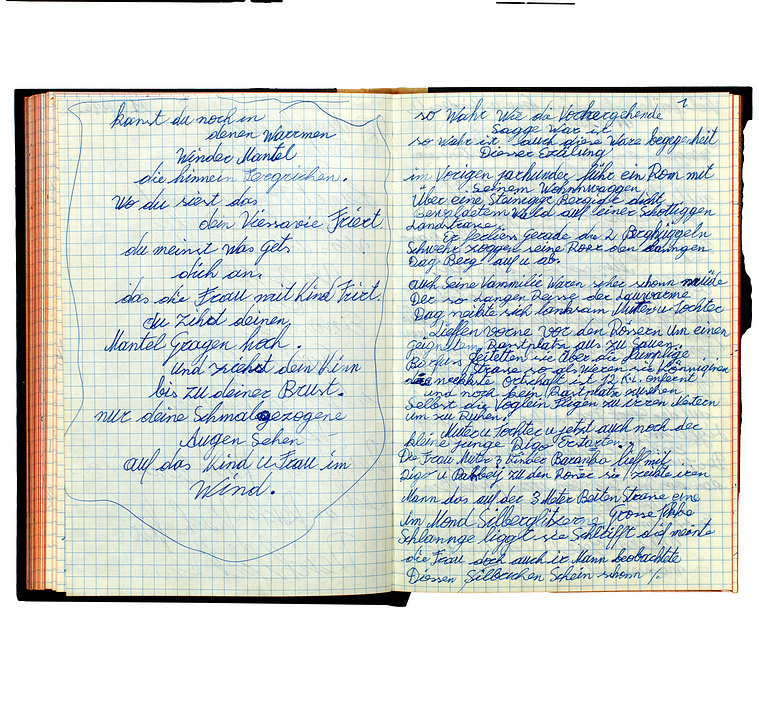 kanst du noch in
denen Warrmen
Winder Mantel
die hinnein fergrichen.
wo du siest das
dein Viessavie Friert.
du meinst was gets
dich an,
das die Frau mit Kind Frirt.
du zihst deinen
Mantel Gragen hoch.
und zichst dein Kinn
bis zu deiner Brust.
nur deine Schmalgezogene
Augen Sehen
auf das Kind u Frau im
Wind.
1
so Wahr Wie die Vorhergehende
Sagge War ist
so Wahr ist auch diese Ware begegenheit
Diesser Erzälung
im Vorigen jarhunder führ ein Rom mit
Seinem Wohnnwaggen
Über eine Steinigge Bergige dicht
Bewaldetem Valld auf einer Schotiggen
Landstrasse
Er ferliess gerade die 2 Berghüggeln
Schwehr zoggen seine Ross den langen
Dag Berg auf u ab.
auch Seine Vammilie Waren seher schonn müde
Der so Langen Reise der Lauwarme
Dag neihte sich lanksam Mutter u Tochter
Lieffen vorne vor den Rosern Um einen
geigneten Rastplatz aus zu Sauen.
Barfuss Leiteten sie über die Hümplige
Strase so als Weren sie Königinen
die nechste Ortschaft ist 12 KL. entfernt
und noch kein Rastplatz zusehen
Selbst die Voglein Flogen zu irren Nestern
Um zu Ruhen.
Mutter u Tochter u jetzt auch noch der
kleine junge
Die Frau Muter 3 Kinder Baranka lief mit
Digo u Bakkeij zu den Roser sie zeichte iren
Mann das auf der 3 Meter Breiten Strase eine
Im Mond Silberglitzerne Grosse
Schlannge liggt sie Schllifft sich meinte
die Frau doch auch ir Mann beobachtete
Diessen Silbrichen Schein schonn /.